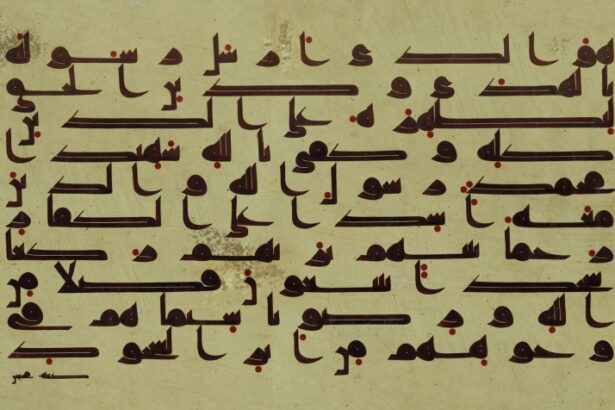 هو الذى ارسل رسوله
بالهدى و دين الحق
ليظهره على الدين
كله و كفى بالله شهيدا
محمد رسول الله و الذين
معه اشدا على الكفار
رحما بينهم تريهم ركعا
سجدا يبتغون فضلا من
الله و رضونا سيماهم فى
وجوههم من اثر السجود